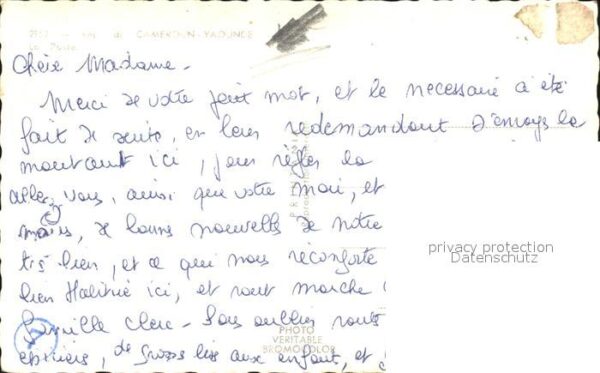 CAMEROUN - YAOUNDE
La Poste
Chère Madame -
Merci de votre petit mot, et le necessaire a été
fait de suite, en leur redemandant d'envoyer le
montant ici, pour régler la
allez vous, ainsi que votre mari, et
de bonnes nouvelles de notre
très bien, et ce qui nous réconforte
bien ici, et tout marche
famille chère - Sans oublier
de gross bis aux enfants, et
PHOTO
VERITABLE
BROMOCOLOR
privacy protection
Datenschutz